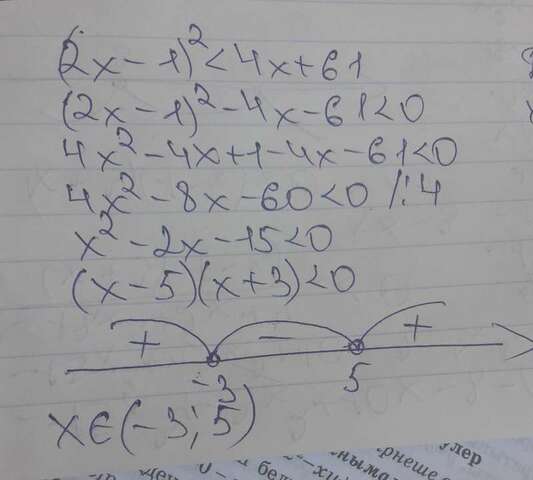 (2x-1)²<4x+61
(2x-1)²-4x-61<0
4x²-4x+1-4x-61<0
4x²-8x-60<0 /:4
x²-2x-15<0
(x-5)(x+3)<0
+ - +
-3 5
x∈(-3;5)